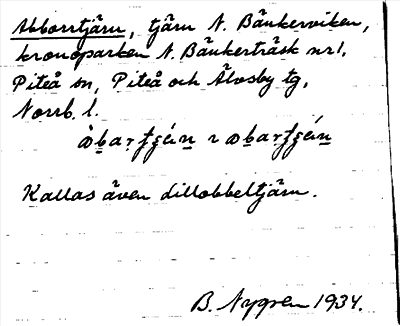 Abborrtjärn, tjärn N. Bänkerviken,
kronoparken N. Bänkerträsk nr 1,
Piteå sn, Piteå och Älvsby tg,
Norrb. l.
Kallas även dillobbeltjärn.
B. Nygren 1934.